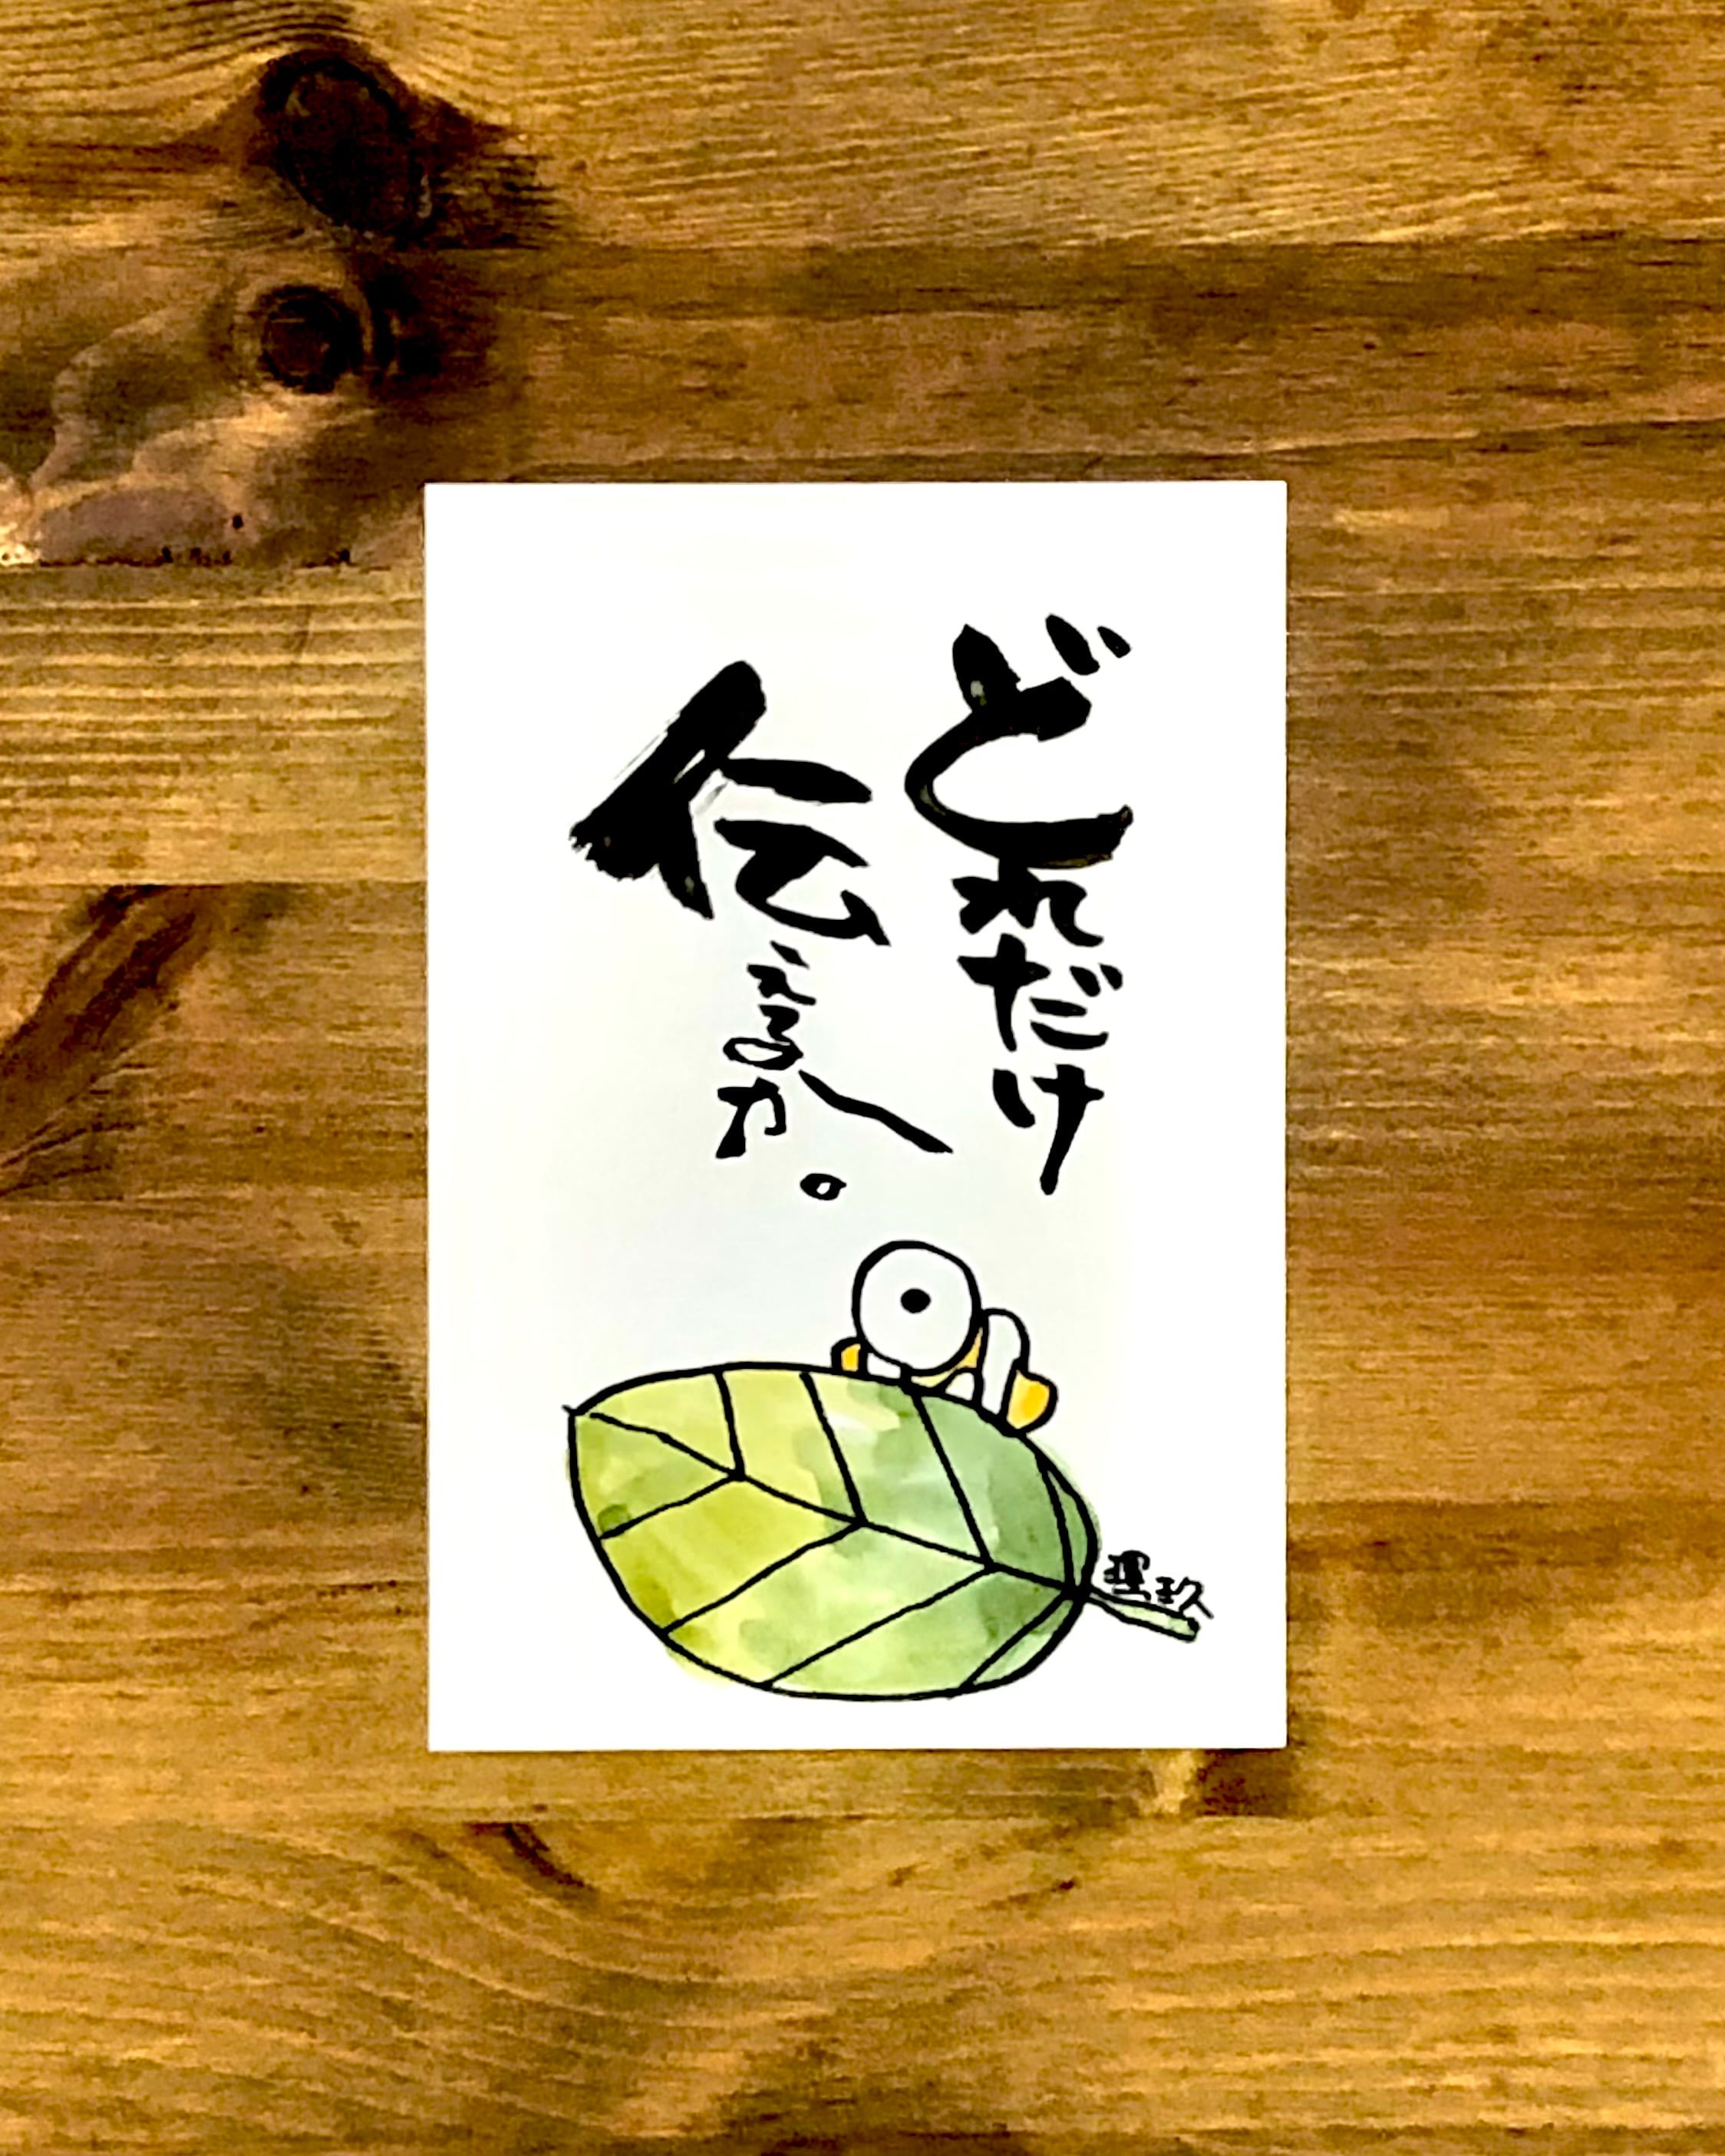 どれだけ
伝えるか。
理玖